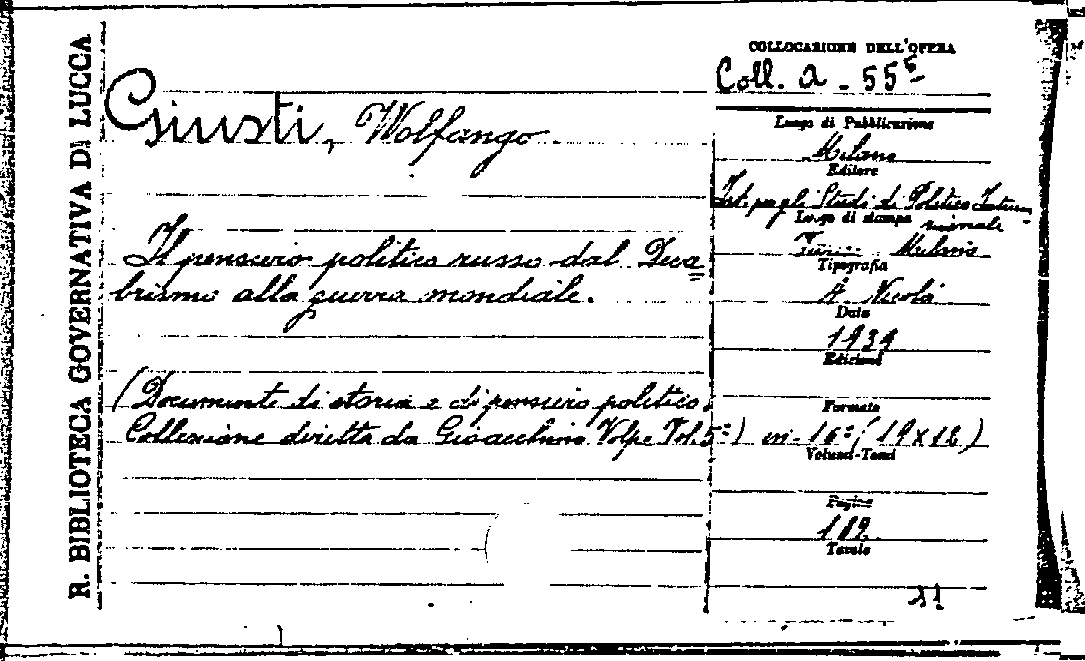 R. BIBLIOTECA GOVERNATIVA DI LUCCA
COLLOCAZIONE DELL'OPERA
Coll. A - 55⁵
Giusti, Wolfango
Il pensiero politico russo dal Deca
brismo alla guerra mondiale.
(Documenti di storia e di pensiero politico.
Collezione diretta da Gioacchino Volpe Vol. 5°)
Luogo di Pubblicazione
Milano
Editore
Ist. per gli Studi di Politica Interna
zionale
Luogo di stampa
Milano
Tipografia
A. Nicola
Data
1939
Edizione
Formato
in-16° (19x12)
Volumi-Tomi
Pagine
182
Tavole